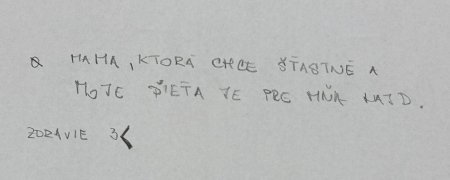 A MAMA, KTORÁ CHCE ŠŤASTNÉ A
MOJE DIEŤA JE PRE MŇA NAJD.
ZDRAVIE 3<